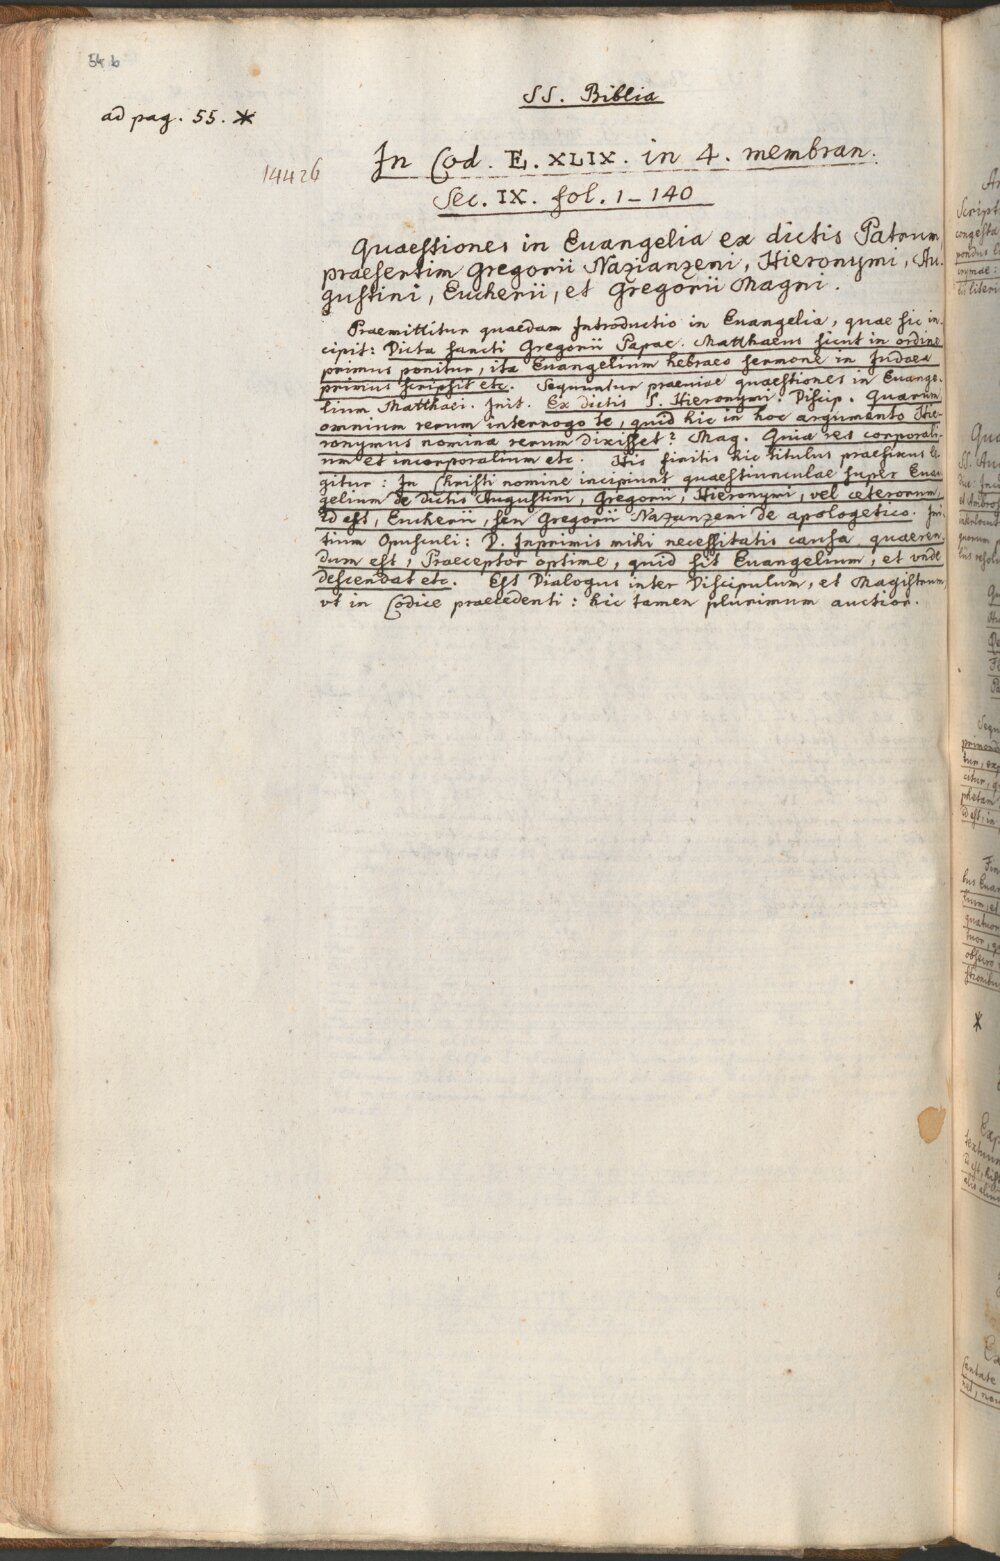 54 b
SS. Biblia
ad pag. 55. *
14426
In Cod. E. XLIX. in 4. membran.
Sec. IX. fol. 1-140
Quaestiones in Euangelia ex dictis Patrum,
praesertim Gregorii Nazianzeni, Hieronymi, Au-
gustini, Eucherii, et Gregorii Magni.
Praemittitur quaedam Introductio in Euangelia, quae sic in-
cipit: Dicta sancti Gregorii Papae. Matthaeus sicut in ordine
primus ponitur, ita Euangelium hebraeo sermone in Judaea
primus scripsit etc. Sequuntur praeviae quaestiones in Euange-
lium Matthaei. Init. Ex dictis S. Hieronymi. Discip. Quarum
omnium rerum interrogo te, quid hic in hoc argumento Hie-
ronymus nomina rerum dixisset? Mag. Quia res corporali-
um et incorporalium etc. His finitis hic titulus praefixus le-
gitur: In Christi nomine incipiunt quaestiunculae super Euan
gelium de dictis Augustini, Gregorii, Hieronymi, vel ceterorum,
id est, Eucherii, seu Gregorii Nazanzeni de apologetico. Ini-
tium Opusculi: D. Inprimis mihi necessitatis causa quaeren-
dum est, Praeceptor optime, quid sit Euangelium, et unde
descendat etc. Est Dialogus inter Discipulum, et Magistrum,
vt in Codice praecedenti: hic tamen plurimum auctior.